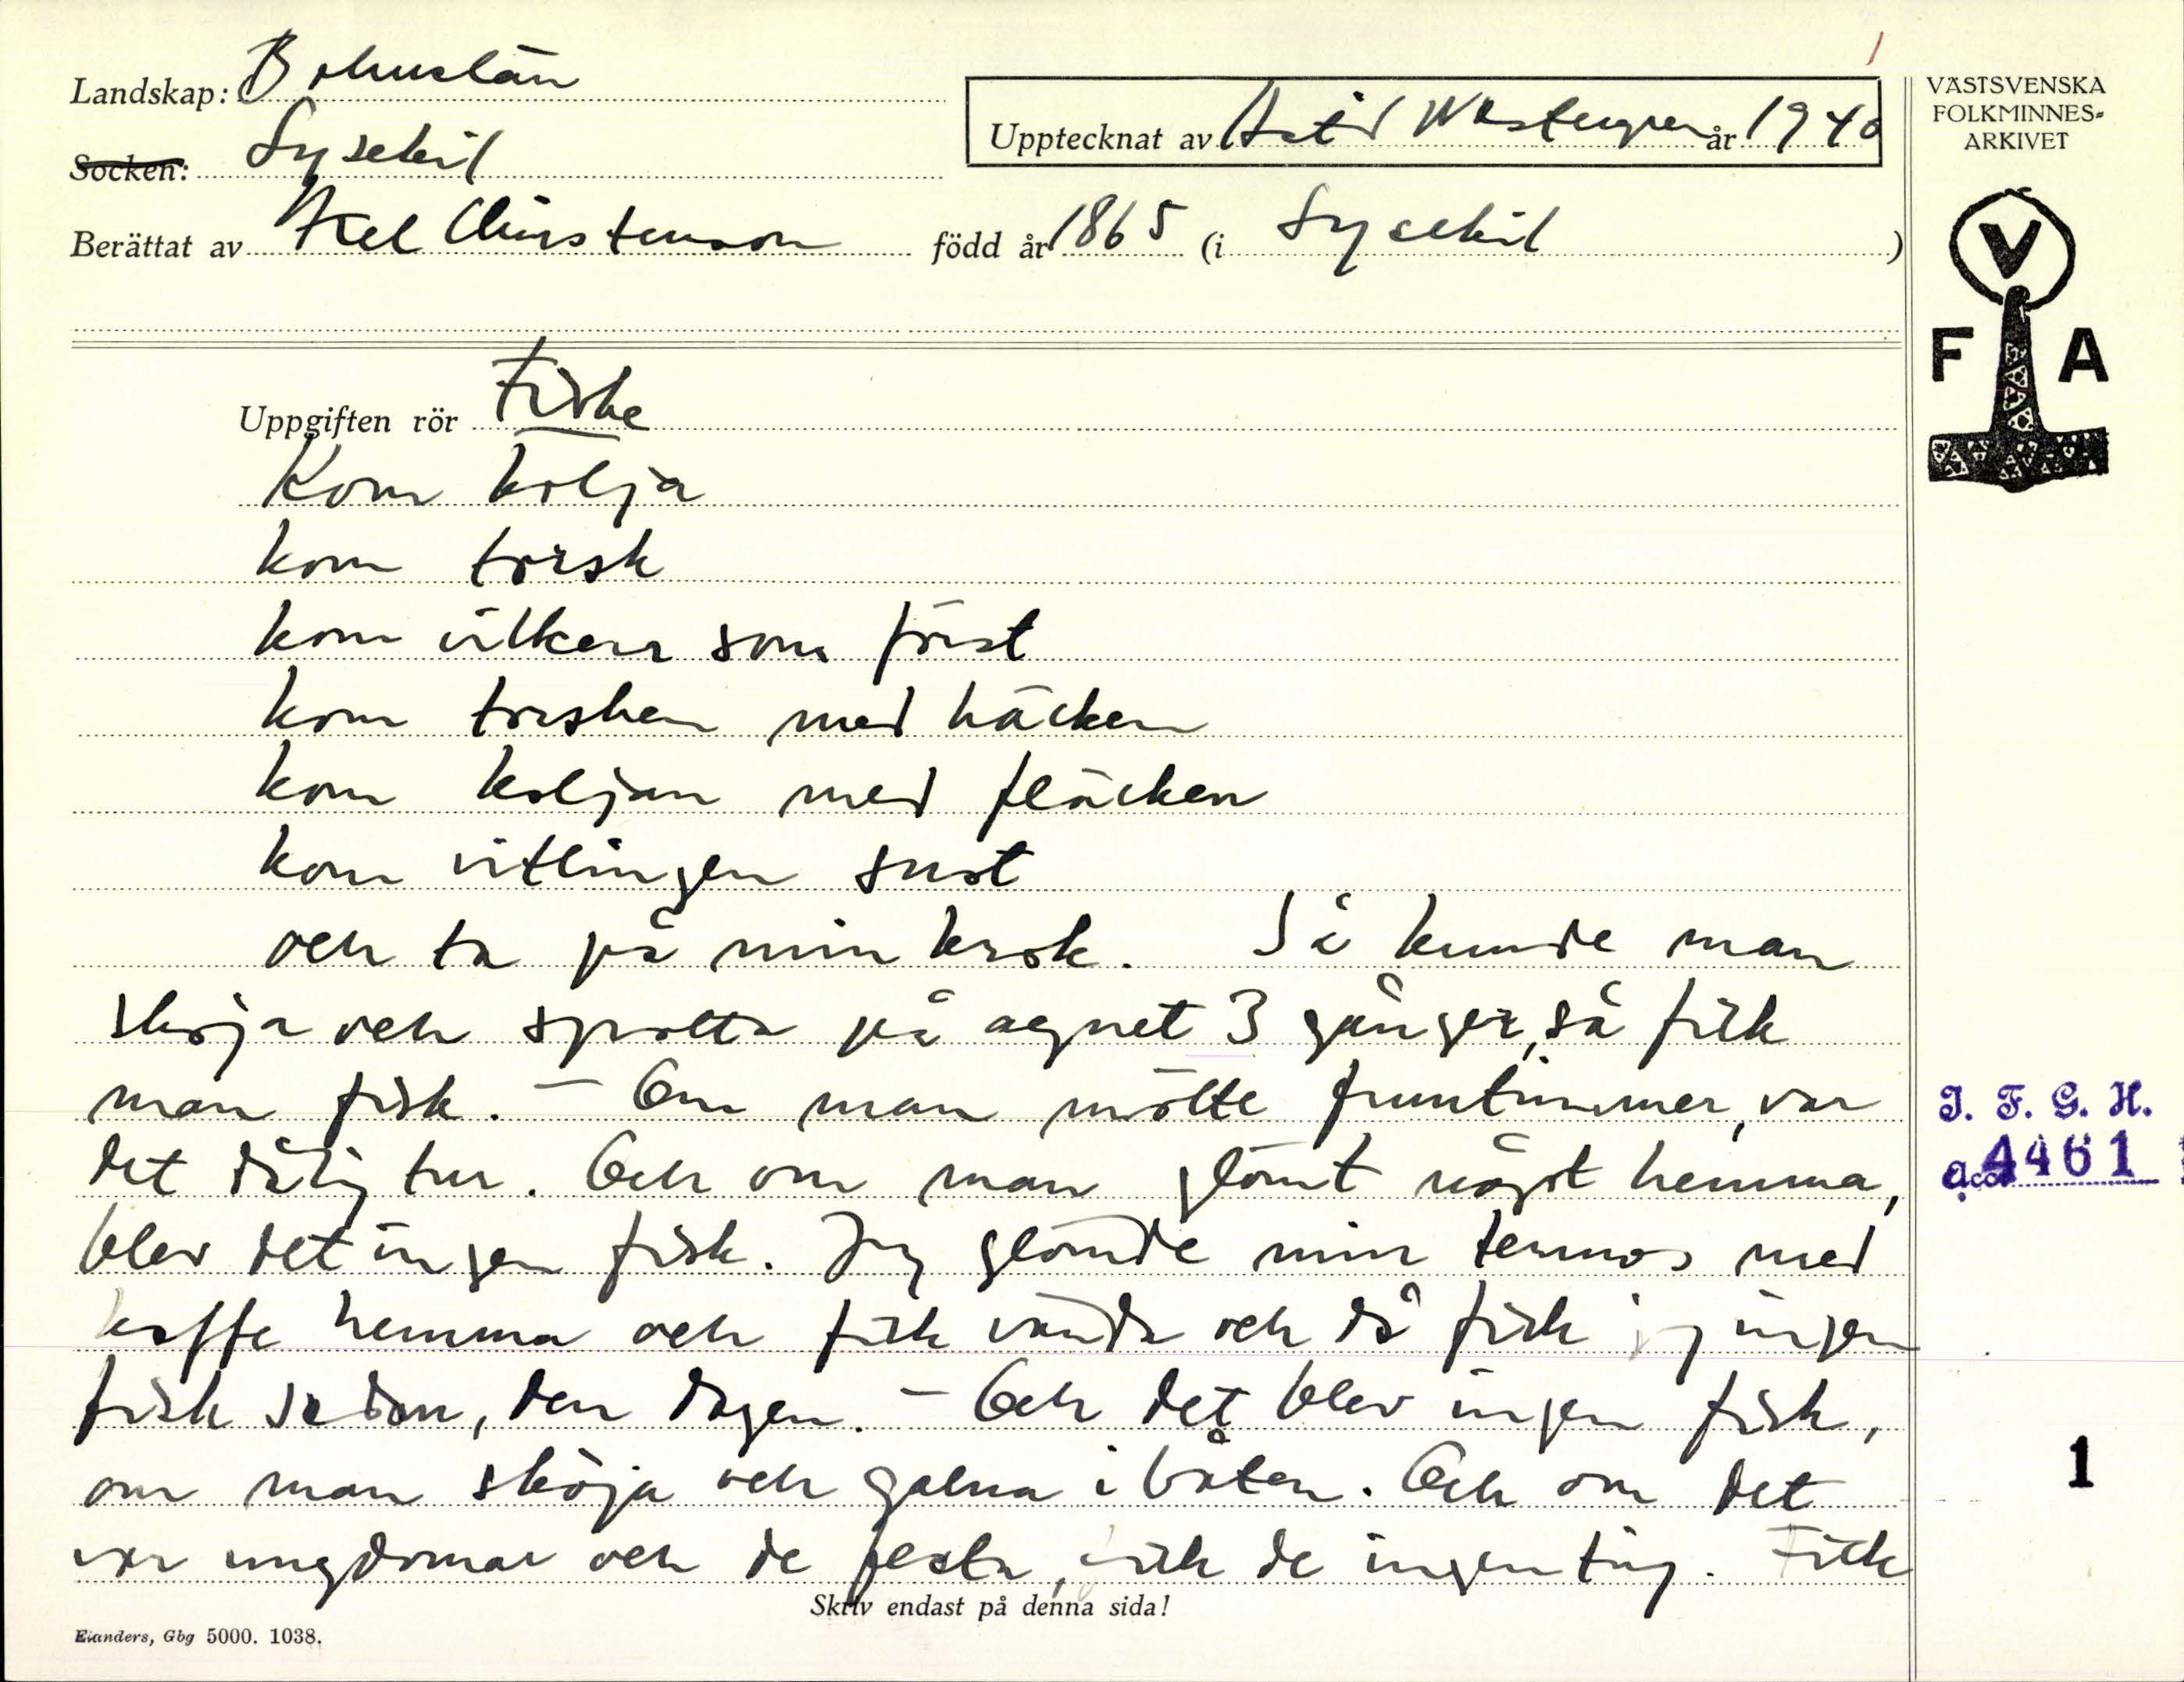 Landskap: Bohuslän
Socken: Lysekil
Upptecknat av Astrid Westergren år 1940
Berättat av Axel Christenson född år 1865 (i Lysekil )
VÄSTSVENSKA
FOLKMINNES-
ARKIVET
V
F A
Uppgiften rör Fiske
Kom kolja
kom torsk
kom vilken som först
kom torsken med häcken
kom koljan med fläcken
kom vitlingen sust
och ta på min krok. Så kunde man
skoja och spotta på agnet 3 gånger, så fick
man fisk. – Om man mötte fruntimmer, var
det dålig tur. Och om man glömt något hemma,
blev det ingen fisk. Jag glömde min termos med
kaffe hemma och fick vända och då fick jag ingen
fisk sedan, den dagen. – Och det blev ingen fisk,
om man skoja och galna i båten. Och om det
var ungdomar och de festa, fick de ingenting. Fick
I. F. G. H.
acc. 4461
1
Skriv endast på denna sida!
Elanders, Gbg 5000. 1038.